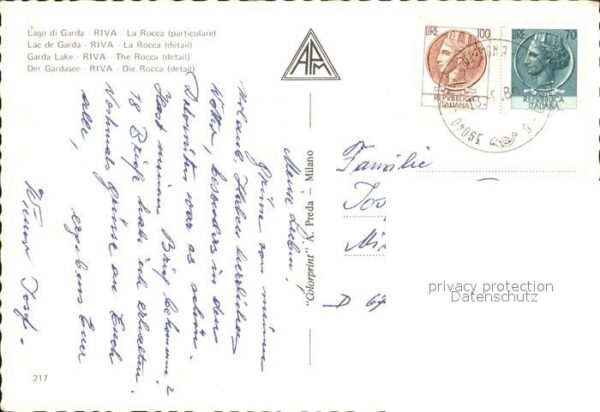 Lago di Garda - RIVA - La Rocca (particolare)
Lac de Garda - RIVA - La Rocca (détail)
Garda Lake - RIVA - The Rocca (detail)
Der Gardasee - RIVA - Die Rocca (detail)
APM
LIRE 100
REPVBBLICA
ITALIANA
LIRE 70
REPVBBLICA
ITALIANA
39040
Meine Lieben!
Grüsse von meinem
Urlaub, haben herrliches
Wetter, besonders in den
Dolomiten war es schön.
Hast meinen Brief bekommen?
18 Briefe hab ich erhalten.
Nochmals grüsse an Euch
alle,
ergebens Euer
Josef.
"Colorprint" A. Preda — Milano
Familie
Jos
Mi
D 67
privacy protection
Datenschutz
217